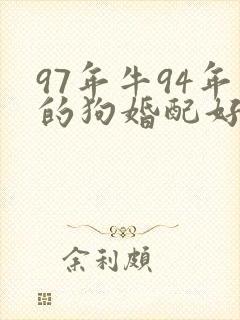 97年牛94年
的狗婚配好
余利頗